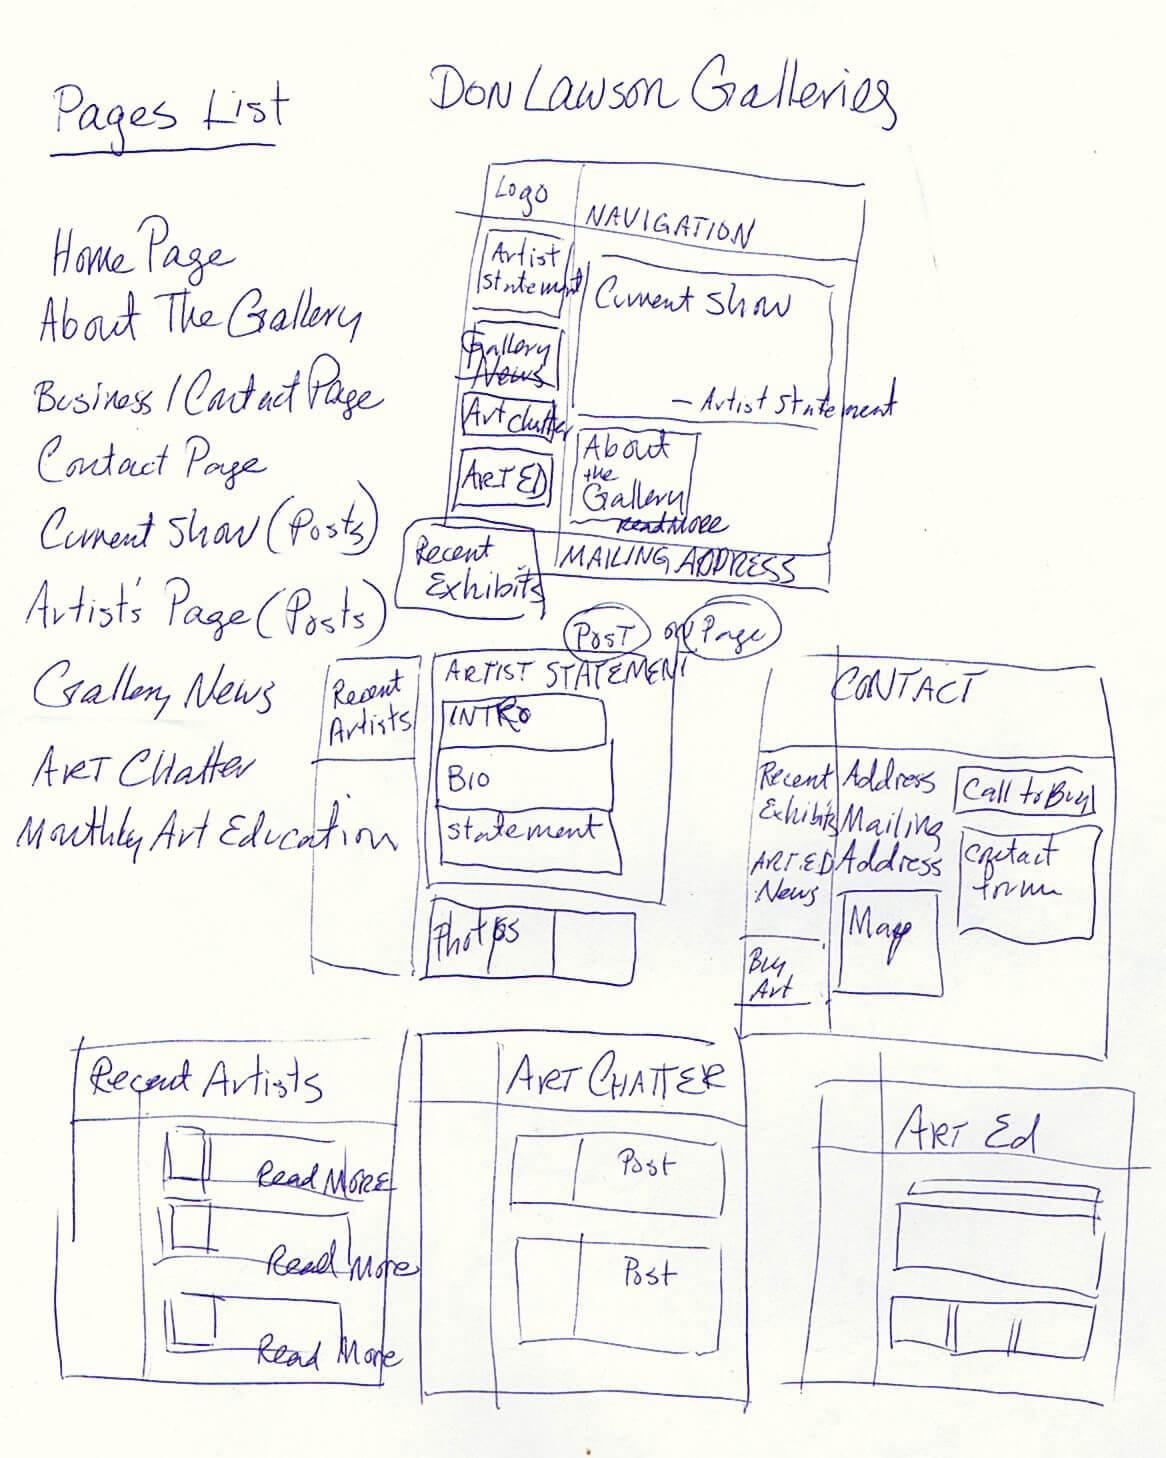 Pages List
Don Lawson Galleries
Home Page
About The Gallery
Business / Contact Page
Contact Page
Current Show (Posts)
Artist's Page (Posts)
Gallery News
Art Chatter
Monthly Art Education
Logo
NAVIGATION
Artist
Statement
Gallery
News
Art Chatter
ART ED
Recent
Exhibits
Current Show
- Artist Statement
About
the
Gallery
Read More
MAILING ADDRESS
Post or Page
Recent
Artists
ARTIST STATEMENT
INTRO
Bio
Statement
Photos
CONTACT
Recent
Exhibits
ART ED
News
Buy
Art
Address
Mailing
Address
Map
Call to Buy
Contact
form
Recent Artists
Read More
Read More
Read More
ART CHATTER
Post
Post
ART Ed